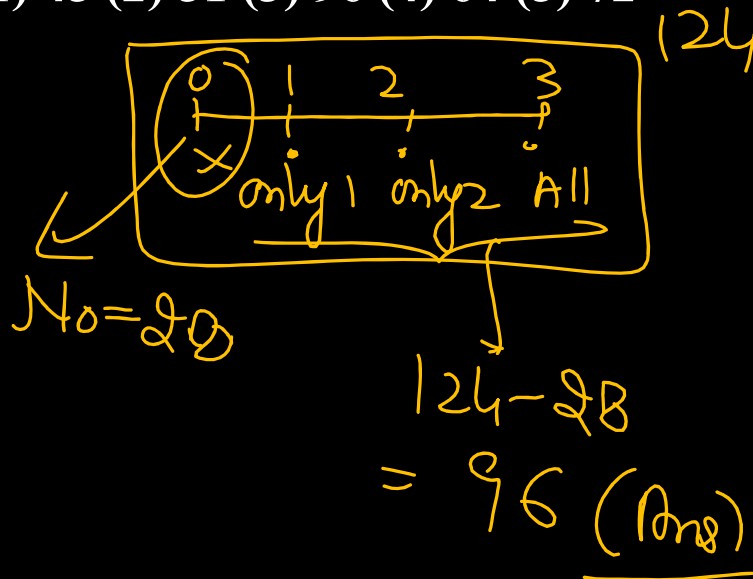 124
0 1 2 3
X only 1 only 2 All
No=28
124-28
= 96 (Ans)